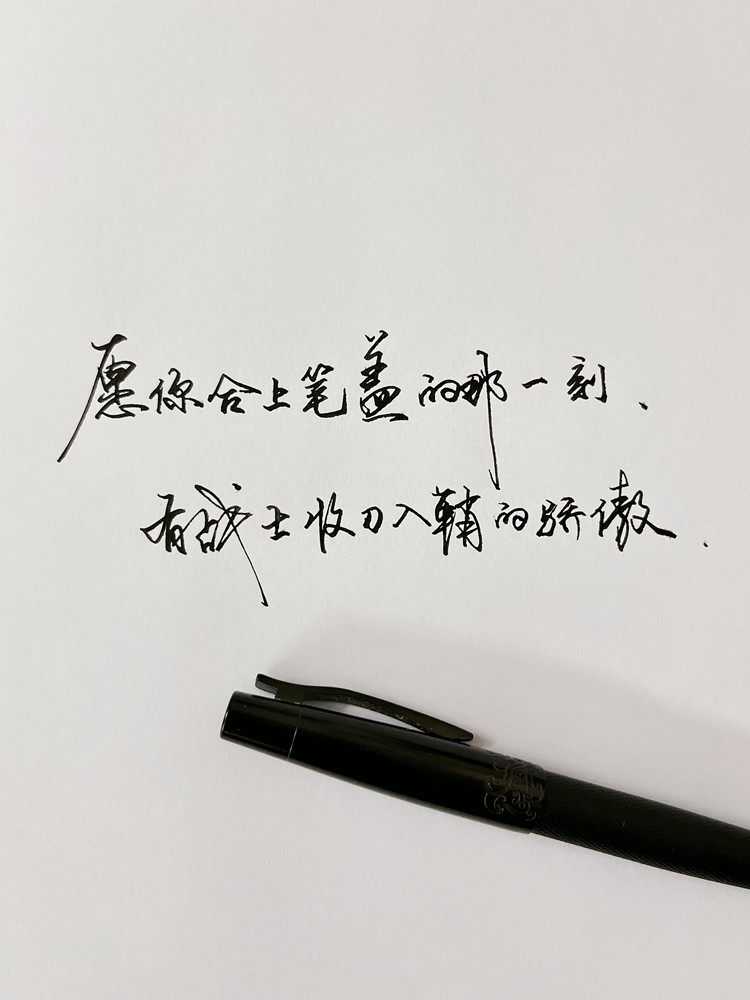 愿你合上笔盖的那一刻、
有战士收刀入鞘的骄傲.